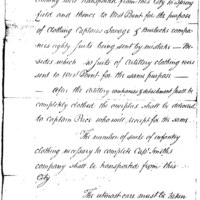 clothing were transported from this City to Spring
field and thence to West Point for the purpose
of clothing Captains Savage & Burbecks
companies eighty suits being sent by mistake — Be-
sides which six suits of artillery clothing were
sent to West Point for the same purpose —
After the artillery companies & detachment shall be
completely clothed the overplus shall be delivered
to Captain Pier who will receipt for the same.
The number of suits of infantry
clothing necessary to complete Capt. Smith's
company shall be transported from this
City
The utmost care must be taken